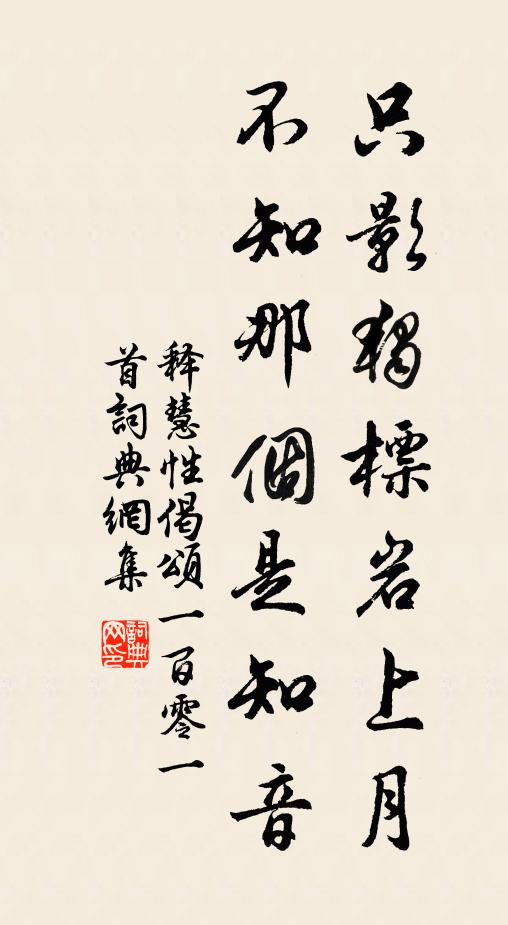 只影獨標岩上月
不知那個是知音
释慧性偈頌一百零一
首詞典網集
詞典
网印